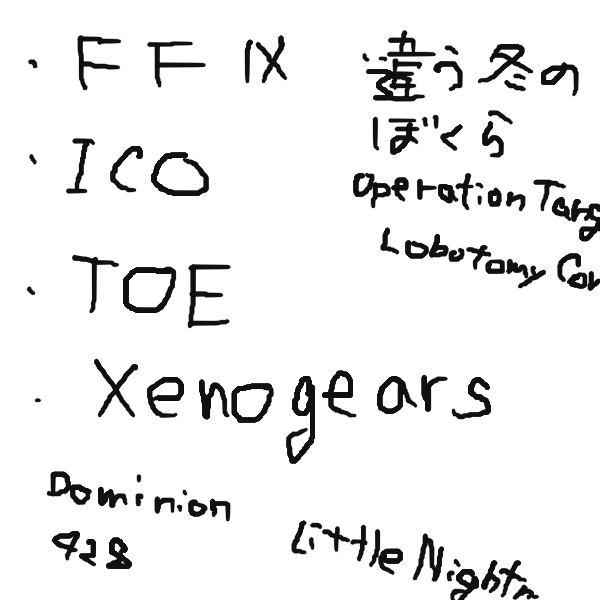 ・FF IX
・ICO
・TOE
・Xenogears
違う冬の
ぼくら
Operation Targ
Lobotomy Cor
Dominion
428
Little Nightm